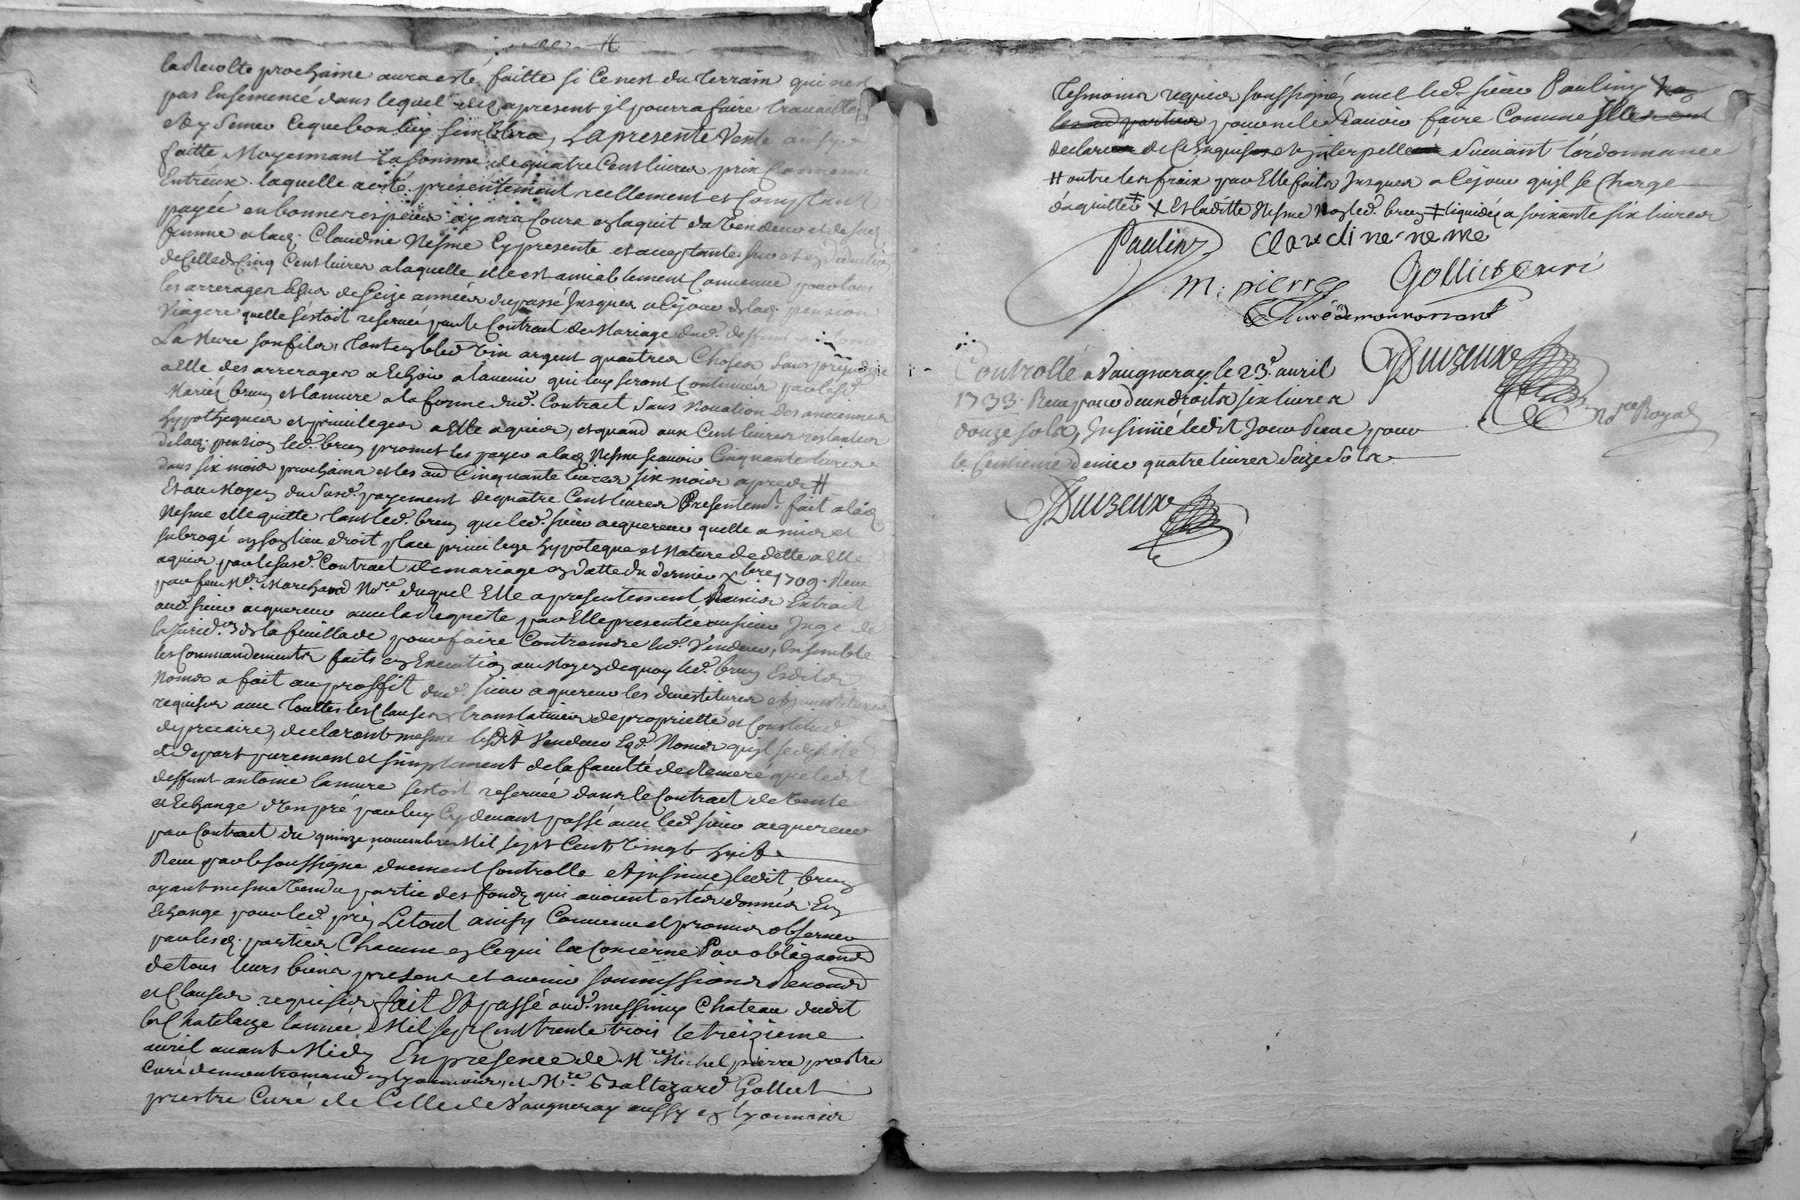 la Recolte prochaine aura esté faitte si Ce n'est du Terrain qui n'est
pas Ensemencé dans lequel dez apresent jl pourra faire travailler
et y semer Ce que bon luy semblera, La presente Vente ainsy
faitte Moyennant la somme de quatre Cent livres prix Convenu
Entreux laquelle a esté presentement reellement et Comptant
payée en bonnes espèces ayant Cours en laquit du Vendeur et de sad.
femme a lad. Claudine Nesme Cy presente et acceptante sur et en deduction
de Celle de Cinq Cent livres a laquelle elle est amiablement Convenue pour tous
les arrerages Echus de seize années du passé Jusques a Ce jour de lad. pension
Viagere quelle s'estoit reservée par le Contrat de Mariage dud. deffunt
La Mure son fils, tant en bled vin argent qu'autres Choses sans prejudice
a elle des arrerages a Echoir a l'avenir qui luy seront Continués par lesd.
Mariés brun et lamure a la forme dud. Contrat sans Novation des anciennes
hypotheques et privileges a elle aquis, et quand aux Cent livres restantes
de lad. pension led. brun promet les payer a lad. Nesme scavoir Cinquante livres
dans six mois prochains et les au Cinquante livres six mois apres H
Et au Moyen du susd. payement de quatre Cent livres Presentemt. fait a lad.
Nesme elle quitte tant led. brun que led. sieur acquereur quelle a mis et
subrogé en son lieu droit place privilege hypoteque et Nature de dette a Elle
aquis par le susd. Contrat de mariage en datte du dernier Xbre 1709. Reçu
par feu Me. Marchand Nore. duquel Elle a presentement Remis Extrait
aud. sieur acquereur avec la Requeste par Elle presentée au sieur Juge de
la Jurid.on de la feuillade pour faire Contraindre led. Vendeur, Ensemble
les Commandements faits en Execution au Moyen de quoy led. brun Esdits
Noms a fait au proffit dud. sieur aquereur les devestitures et jnvestitures
requises avec Touttes les Clauses translatives de proprieté et Constitut
de precaire, declarant mesme ledit Vendeur Esd. Noms qu'jl se desiste
et depart purement et simplement de la faculté de Remeré que ledit
deffunt antoine lamure s'estoit reservée dans le Contrat de Vente
et Echange d'un pré par luy Cy devant passé avec led. sieur acquereur
par Contrat du quinze novembre Mil sept Cent Vingt huit
Reçu par le soussigné duement Controllé et jnsinué, ledit brun
ayant mesme Vendu partie des fonds qui avoient estés donnés En
Echange pour led. pré, Le tout ainsy Convenu et promis observer
par lesd. parties Chacune en Ce qui la Concerne Par obligaond
de tous leurs biens presens et avenir soumissions Renonds
et Clauses requises fait Et passé aud. messimy Chateau dudit
le Chatelard l'année Mil sept Cent trente trois le treizieme
avril avant Midy En presence de Mre Michel pierre prestre
Curé de montromand en lyonnois, et Mre. Baltazard Gollict
prestre Curé de Celle de Vaugneray aussy en lyonnois
Tesmoins requis soussignés avec led. sieur Paulin
pour ne le scavoir faire Comme
declaré de Ce Enquis et jnterpellé suivant l'ordonnance
H outre les fraix par Elle faits Jusques a Ce jour qu'jl se Charge
d'aquitter X Et laditte Nesme Non led. brun ‡ liquidés a soixante six livres
Paulin Claudine nesme
M. pierre Gollict Curé
Curé de monromant
Duizeux
Controllé a Vaugneray le 23e. avril
1733. Reçu pour deux droits six livres
Nore Royal
douze sols, Insinué ledit Jour Reçu pour
le Centieme denier quatre livres seize sols
Duizeux